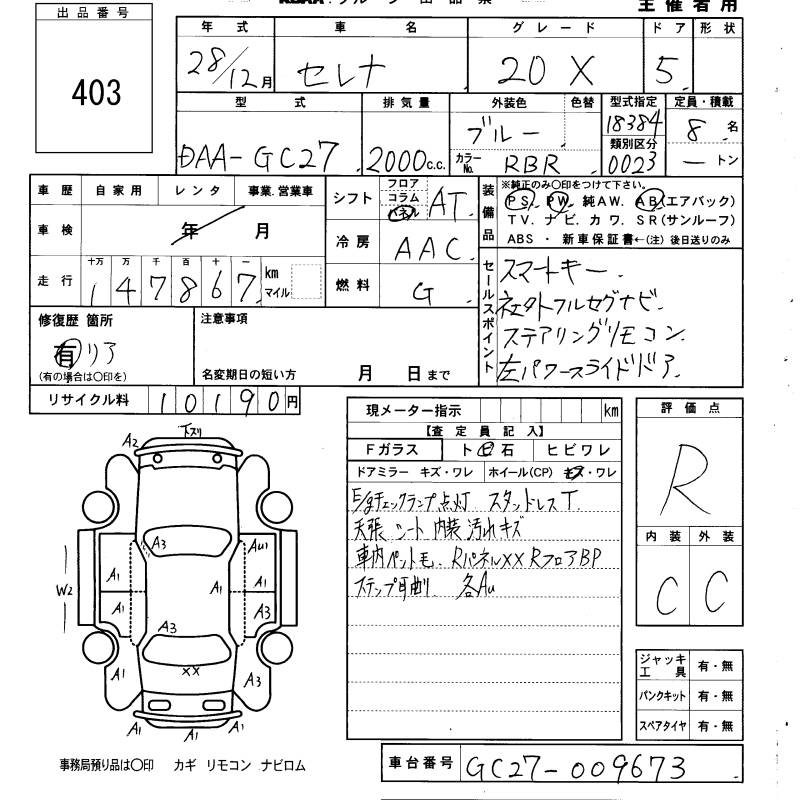 主催者用
出品番号
403
年式 車名 グレード ドア 形状
28/12月 セレナ 20X 5
型式 排気量 外装色 色替 型式指定 定員・積載
DAA-GC27 2000c.c. ブルー 18384 8名
カラーNo. RBR 類別区分 0023 ートン
車歴 自家用 レンタ 事業.営業車
車検 年 月
走行 十万 万 千 百 十 一
147867 km マイル
シフト フロア コラム パネル AT
冷房 AAC
燃料 G
装備品 ※純正のみ〇印をつけて下さい。
PS. PW. 純AW. AB(エアバック)
TV. ナビ. カワ. SR(サンルーフ)
ABS ・ 新車保証書←(注) 後日送りのみ
セールスポイント
スマートキー.
社外フルセグナビ.
ステアリングリモコン.
左パワースライドドア.
修復歴 箇所
有 リア
(有の場合は〇印を)
注意事項
名変期日の短い方 月 日まで
リサイクル料 10190円
現メーター指示 km
【査定員記入】
Fガラス ト 石 ヒビワレ
ドアミラー キズ・ワレ ホイール(CP) キズ・ワレ
E/gチェックランプ点灯 スタッドレスT.
天張 シート 内装 汚れキズ
車内ペット毛. RパネルXX RフロアBP
ステップ 各Au
評価点
R
内装 外装
C C
ジャッキ工具 有・無
パンクキット 有・無
スペアタイヤ 有・無
A2 下スリ
A3 Au1
A1 A1
W2 A1 A3
A3
A1 XX A3
A1 A1 A1
事務局預り品は〇印 カギ リモコン ナビロム
車台番号 GC27-009673